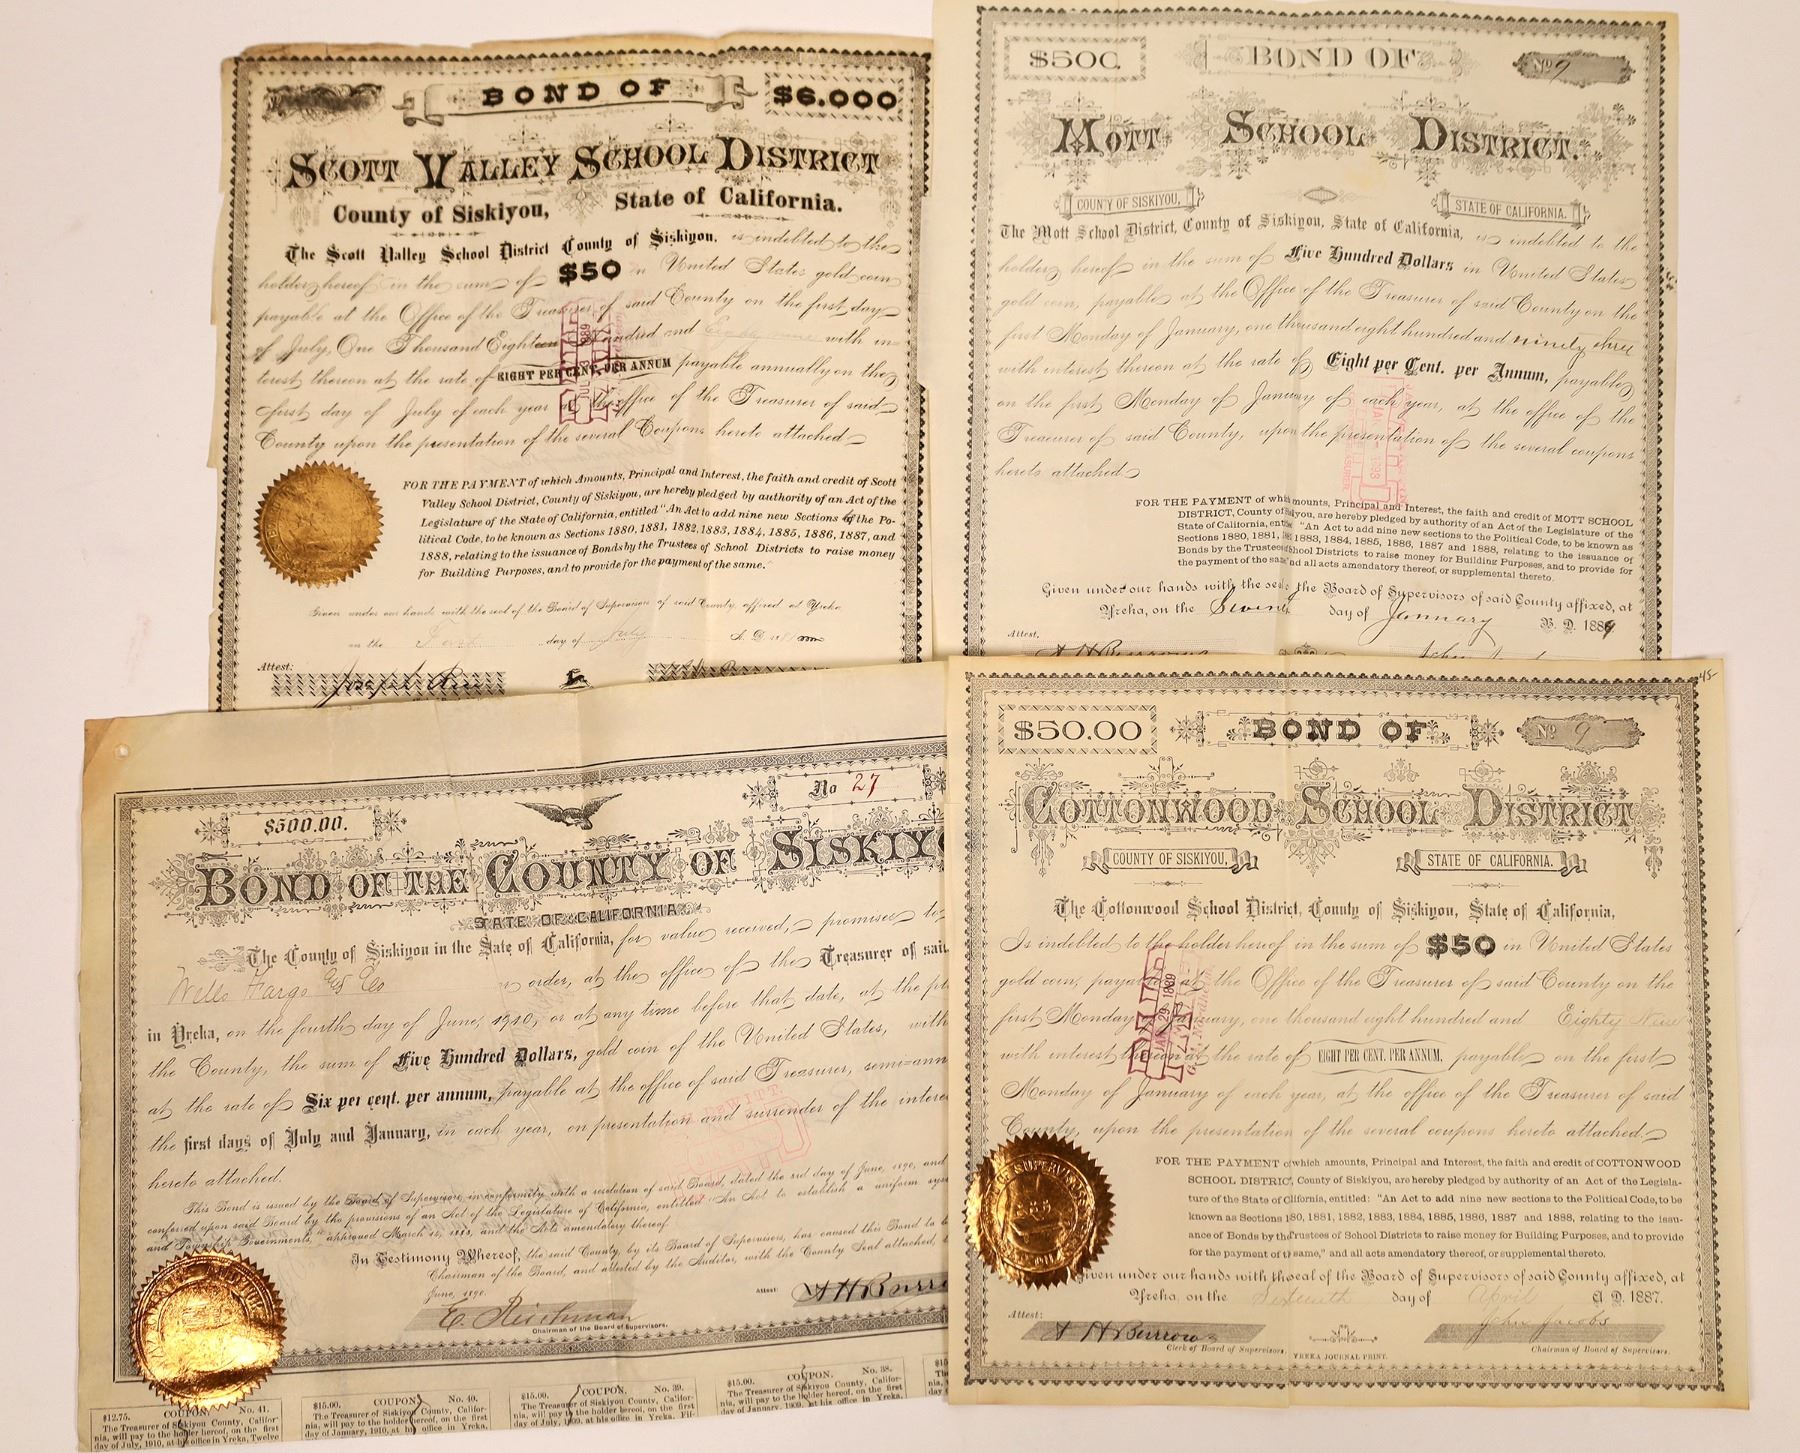 BOND OF $6.000
SCOTT VALLEY SCHOOL DISTRICT
County of Siskiyou, State of California.
The Scott Valley School District County of Siskiyou, is indebted to the
holder hereof in the sum of $50 in United States gold coin
payable at the Office of the Treasurer of said County on the first day
of July, One Thousand Eighteen Hundred and Eighty nine with in-
terest thereon at the rate of EIGHT PER CENT. PER ANNUM payable annually on the
first day of July of each year at the office of the Treasurer of said
County upon the presentation of the several Coupons hereto attached
FOR THE PAYMENT of which Amounts, Principal and Interest, the faith and credit of Scott
Valley School District, County of Siskiyou, are hereby pledged by authority of an Act of the
Legislature of the State of California, entitled "An Act to add nine new Sections of the Po-
litical Code, to be known as Sections 1880, 1881, 1882, 1883, 1884, 1885, 1886, 1887, and
1888, relating to the issuance of Bonds by the Trustees of School Districts to raise money
for Building Purposes, and to provide for the payment of the same."
Given under our hands with the seal of the Board of Supervisors of said County affixed at Yreka
on the First day of July A. D.
Attest:
$500. BOND OF No 9
MOTT SCHOOL DISTRICT.
COUNTY OF SISKIYOU, STATE OF CALIFORNIA.
The Mott School District, County of Siskiyou, State of California, is indebted to the
holder hereof in the sum of Five Hundred Dollars in United States
gold coin, payable at the Office of the Treasurer of said County on the
first Monday of January, one thousand eight hundred and ninety three
with interest thereon at the rate of Eight per Cent. per Annum, payable
on the first Monday of January of each year, at the office of the
Treasurer of said County, upon the presentation of the several coupons
hereto attached
FOR THE PAYMENT of which amounts, Principal and Interest, the faith and credit of MOTT SCHOOL
DISTRICT, County of Siskiyou, are hereby pledged by authority of an Act of the Legislature of the
State of California, entitled "An Act to add nine new sections to the Political Code, to be known as
Sections 1880, 1881, 1883, 1884, 1885, 1886, 1887 and 1888, relating to the issuance of
Bonds by the Trustees School Districts to raise money for Building Purposes, and to provide for
the payment of the same and all acts amendatory thereof, or supplemental thereto.
Given under our hands with the seal the Board of Supervisors of said County affixed, at
Yreka, on the Seventh day of January A. D. 1889
Attest,
A H Burrows
$500.00. No 27
BOND OF THE COUNTY OF SISKIYO
STATE OF CALIFORNIA.
The County of Siskiyou in the State of California, for value received, promises to
Wells Fargo & Co or order, at the office of the Treasurer of sai
in Yreka, on the fourth day of June, 1910, or at any time before that date, at the pl
the County, the sum of Five Hundred Dollars, gold coin of the United States, with
at the rate of Six per cent. per annum, payable at the office of said Treasurer, semi-ann
the first days of July and January, in each year, on presentation and surrender of the intere
hereto attached.
This Bond is issued by the Board of Supervisors, in conformity with a resolution of said Board, dated the 3rd day of June, 1890, and
conferred upon said Board by the provisions of an Act of the Legislature of California, entitled "An Act to establish a uniform sys
and Township Governments," approved March 14, 1883, and the Acts amendatory thereof
In Testimony Whereof, the said County, by its Board of Supervisors, has caused this Bond to b
Chairman of the Board, and attested by the Auditor, with the County Seal attached,
June, 1890.
Attest: A H Burro
E. Reichman
Chairman of the Board of Supervisors.
$12.75. COUPON. No. 41.
The Treasurer of Siskiyou County, Califor-
nia, will pay to the holder hereof, on the first
day of July, 1910, at his office in Yreka, Twelve
$15.00. COUPON. No. 40.
The Treasurer of Siskiyou County, Califor-
nia, will pay to the holder hereof, on the first
day of January, 1910, at his office in Yreka,
$15.00. COUPON. No. 39.
The Treasurer of Siskiyou County, Califor-
nia, will pay to the holder hereof, on the first
day of July, 1909, at his office in Yreka, Fif-
$15.00. COUPON. No. 38.
The Treasurer of Siskiyou County, Califor-
nia, will pay to the holder hereof, on the first
day of January, 1909, at his office in Yreka,
45-
$50.00 BOND OF No 9
COTTONWOOD SCHOOL DISTRICT
COUNTY OF SISKIYOU, STATE OF CALIFORNIA.
The Cottonwood School District, County of Siskiyou, State of California,
Is indebted to the holder hereof in the sum of $50 in United States
gold coin, payable at the Office of the Treasurer of said County on the
first Monday January, one thousand eight hundred and Eighty Nine
with interest thereon at the rate of EIGHT PER CENT. PER ANNUM, payable on the first
Monday of January of each year, at the office of the Treasurer of said
County, upon the presentation of the several coupons hereto attached.
JAN 29 1889
FOR THE PAYMENT of which amounts, Principal and Interest, the faith and credit of COTTONWOOD
SCHOOL DISTRIC, County of Siskiyou, are hereby pledged by authority of an Act of the Legisla-
ture of the State of Clifornia, entitled: "An Act to add nine new sections to the Political Code, to be
known as Sections 180, 1881, 1882, 1883, 1884, 1885, 1886, 1887 and 1888, relating to the issu-
ance of Bonds by the Trustees of School Districts to raise money for Building Purposes, and to provide
for the payment of the same," and all acts amendatory thereof, or supplemental thereto.
Given under our hands with the seal of the Board of Supervisors of said County affixed, at
Yreka, on the Sixteenth day of April A. D. 1887.
Attest:
A H Burrows John Jacobs
Clerk of Board of Supervisors. YREKA JOURNAL PRINT. Chairman of Board of Supervisors.